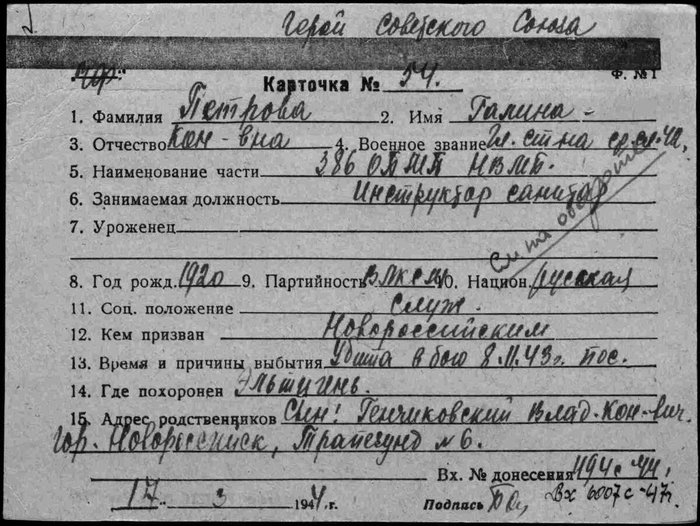 Герой Советского Союза
Карточка № 54.
Ф. № 1
1. Фамилия Петрова 2. Имя Галина
3. Отчество Кон-вна 4. Военное звание Гл. ст-на
5. Наименование части 386 ОБМП НВМБ.
6. Занимаемая должность Инструктор санитар
7. Уроженец
См. на обороте
8. Год рожд. 1920 9. Партийность ВЛКСМ 10. Национ. русская
11. Соц. положение служ.
12. Кем призван Новороссийским
13. Время и причины выбытия Убита в бою 8.11.43 г. пос.
14. Где похоронен Эльтиген.
15. Адрес родственников Сын: Генчиковский Влад. Кон-вич.
гор. Новороссийск, Трапезунд № 6.
Вх. № донесения 494с-44г
17 3 1944 г. Подпись Вх 6007с-47г